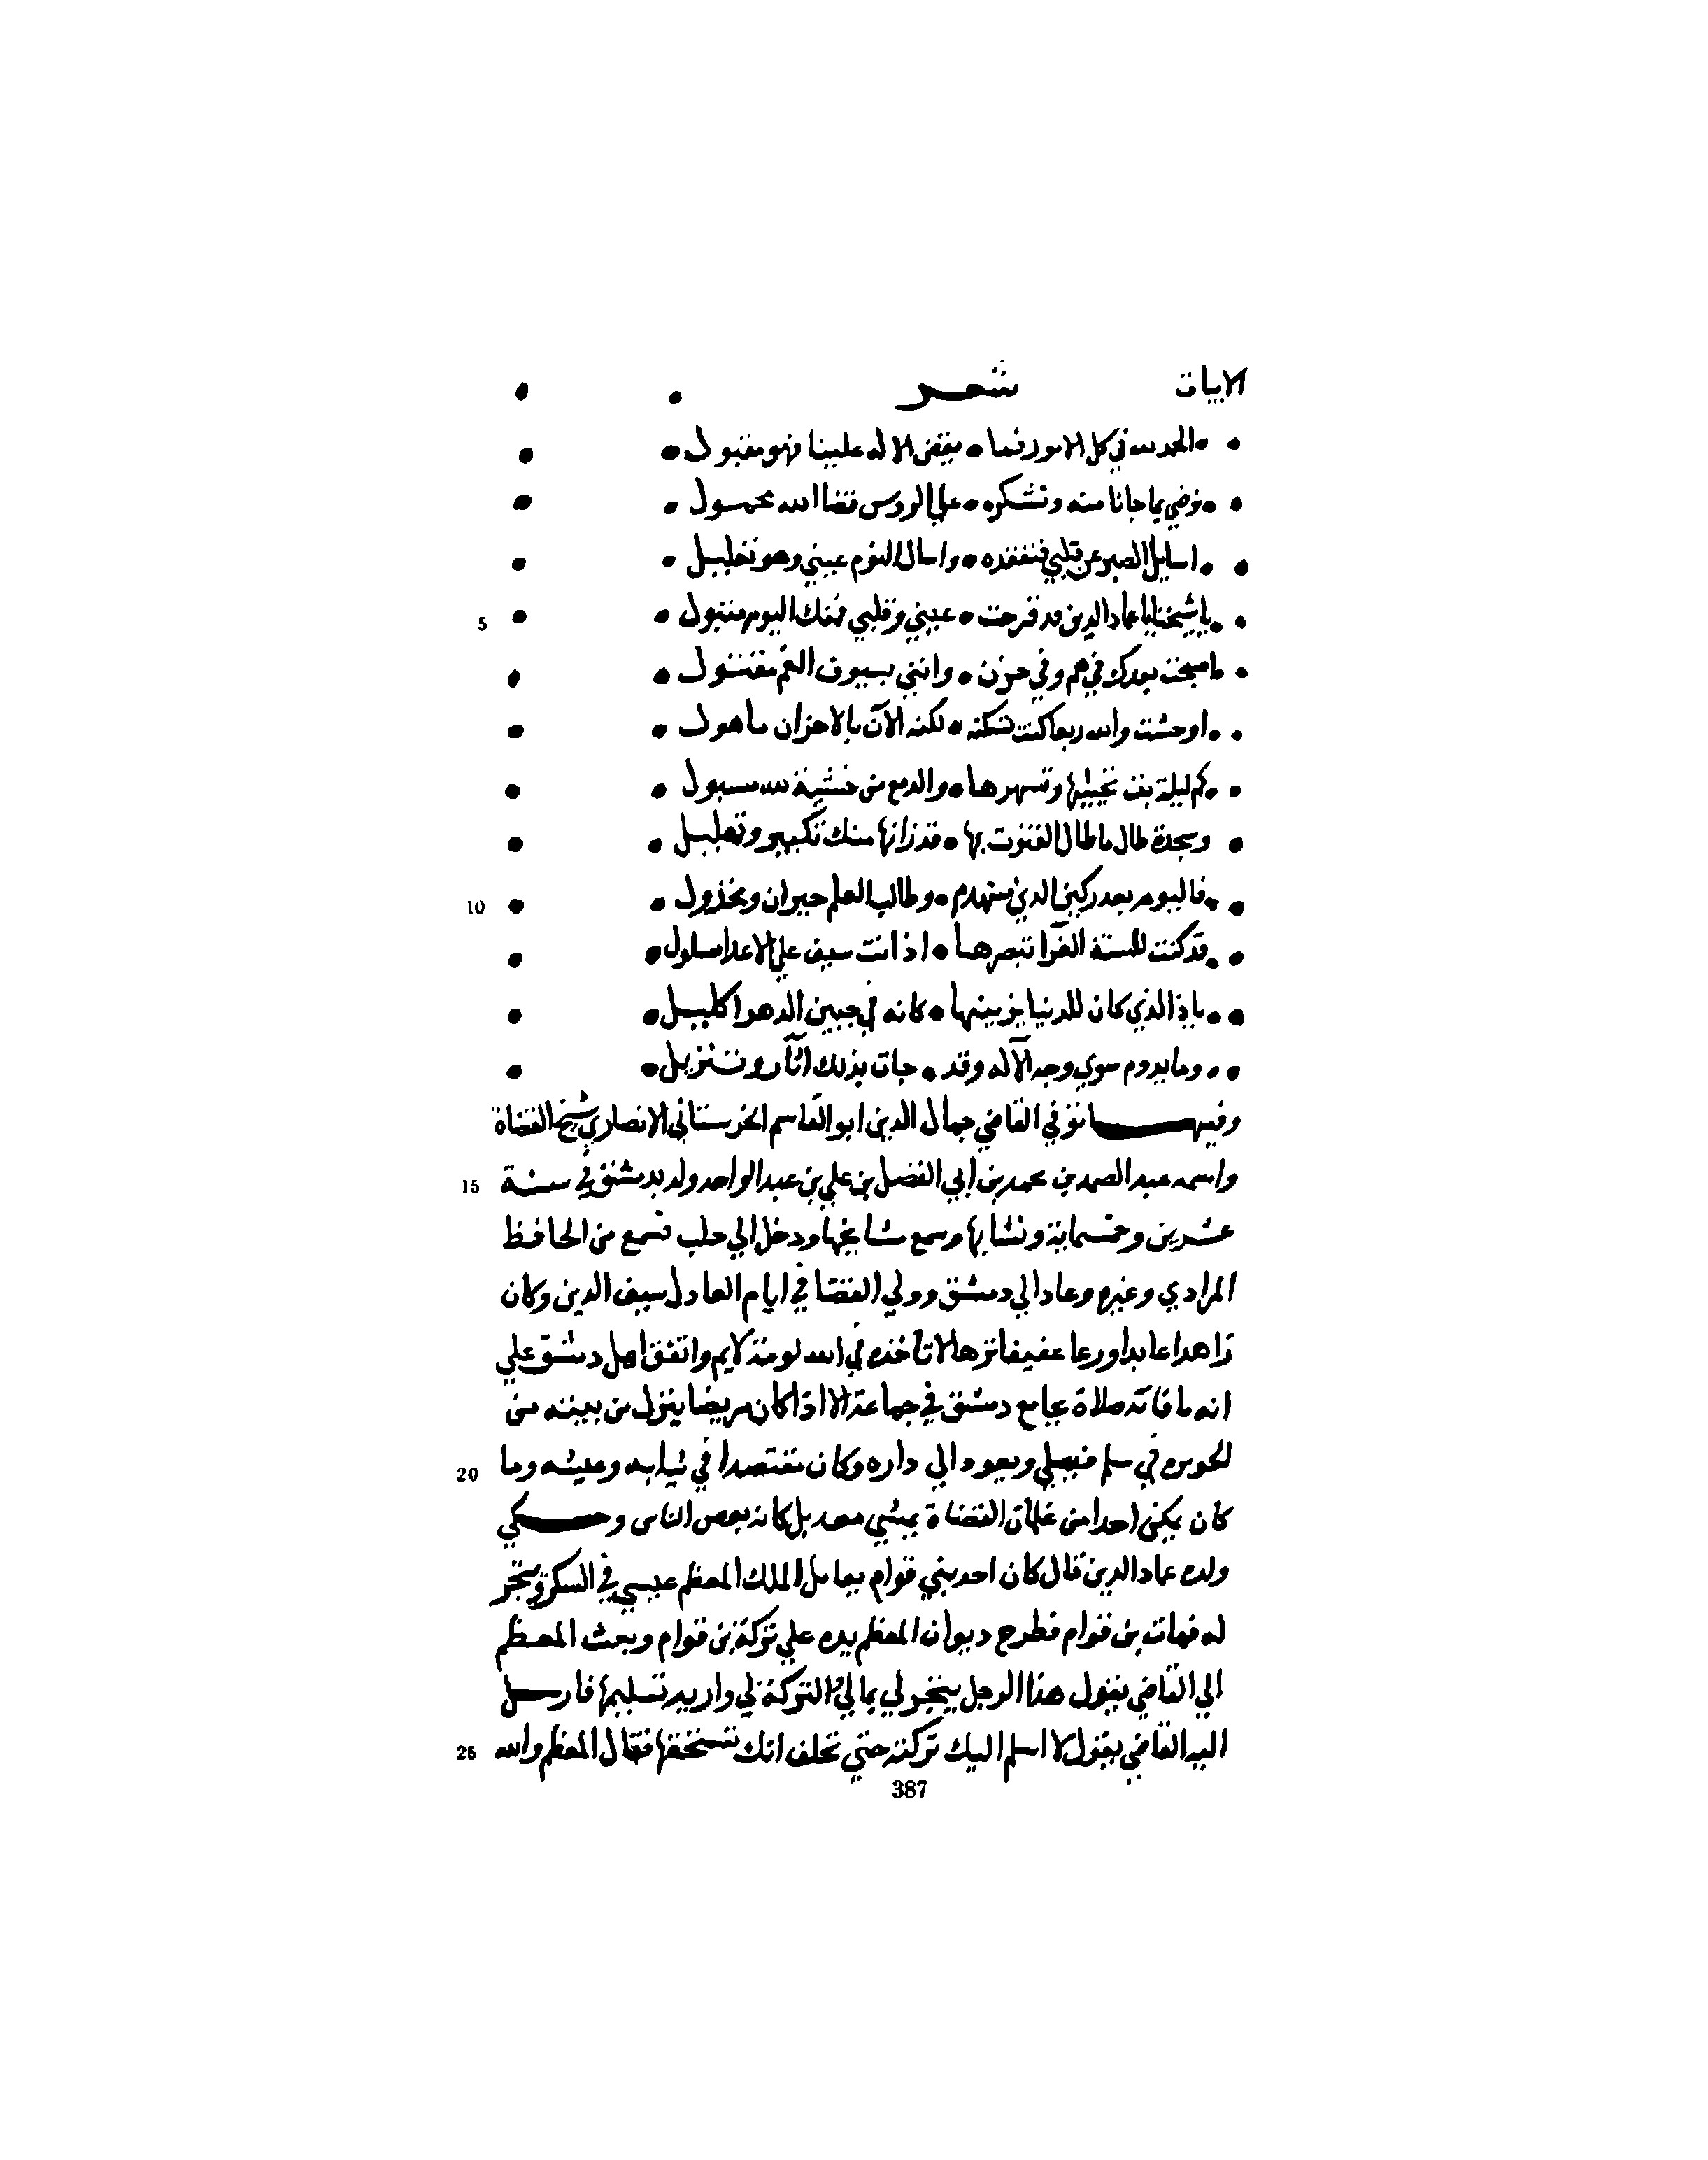 الابيات شعر
الحمد لله في كل الامور فما • يقضي الاله علينا فهو مقبول
نرضي بما جانا منه ونشكره • علي الروس قضا الله محمول
اسايل الصبر عن قلبي فتفقده • واسال النوم عيني وهو تعليل
يا شيخنا يا عماد الدين قد قرحت • عيني وقلبي فمنك اليوم متبول
5
اصبحت بعدك في هم وفي حزن • وانني بسيوف الغم مقتول
اوحشت والله ربعا كنت تسكنه • لكنه الآن بالاحزان ماهول
كم ليلة بت تحييها وتسهرها • والدمع من خشية لله مسبول
وسجدة طال ما طال القنوت بها • قد زانها منك تكبير وتهليل
فاليوم بعدك ركن الدين منهدم • وطالب العلم حيران ومخذول
10
قد كنت للسنة الغرا تنصرها • اذ انت سيف علي الاعدا مسلول
ياذا الذي كان للدنيا يزينها • كانه في جبين الدهر اكليل
وما يدوم سوي وجه الآله وقد • جات بذلك اثآر وتنزيل
وفيها توفي القاضي جمال الدين ابو القاسم الخرستاني الانصاري شيخ القضاة
واسمه عبد الصمد بن محمد بن ابي الفضل بن علي بن عبد الواحد ولد بدمشق في سنة
15
عشرين وخمسماية ونشا بها وسمع مشايخها ودخل الي حلب فسمع من الحافظ
المرادي وغيره وعاد الي دمشق وولي القضا في ايام العادل سيف الدين وكان
زاهدا عابدا ورعا عفيفا نزها لا تآخذه في الله لومة لايم واتفق اهل دمشق علي
انه ما فاتته صلاة بجامع دمشق في جماعة الا اذا كان مريضا ينزل من بيته من
الحويره في سلم فيصلي ويعود الي داره وكان مقتصدا في ثيابه وعيشه وما
20
كان يمكن احدا من غلمان القضاة يمشي معه بل كانه بعض الناس وحكي
ولده عماد الدين قال كان احد بني قوام يعامل الملك المعظم عيسي في السكر ويتجر
له فمات بن قوام فطرح ديوان المعظم يده علي تركة بن قوام وبعث المعظم
الي القاضي يقول هذا الرجل يتجر لي بمالي والتركة لي واريد تسليمها فارسل
اليه القاضي يقول لا اسلم اليك تركته حتي تحلف انك تستحقها فقال المعظم والله
25
387